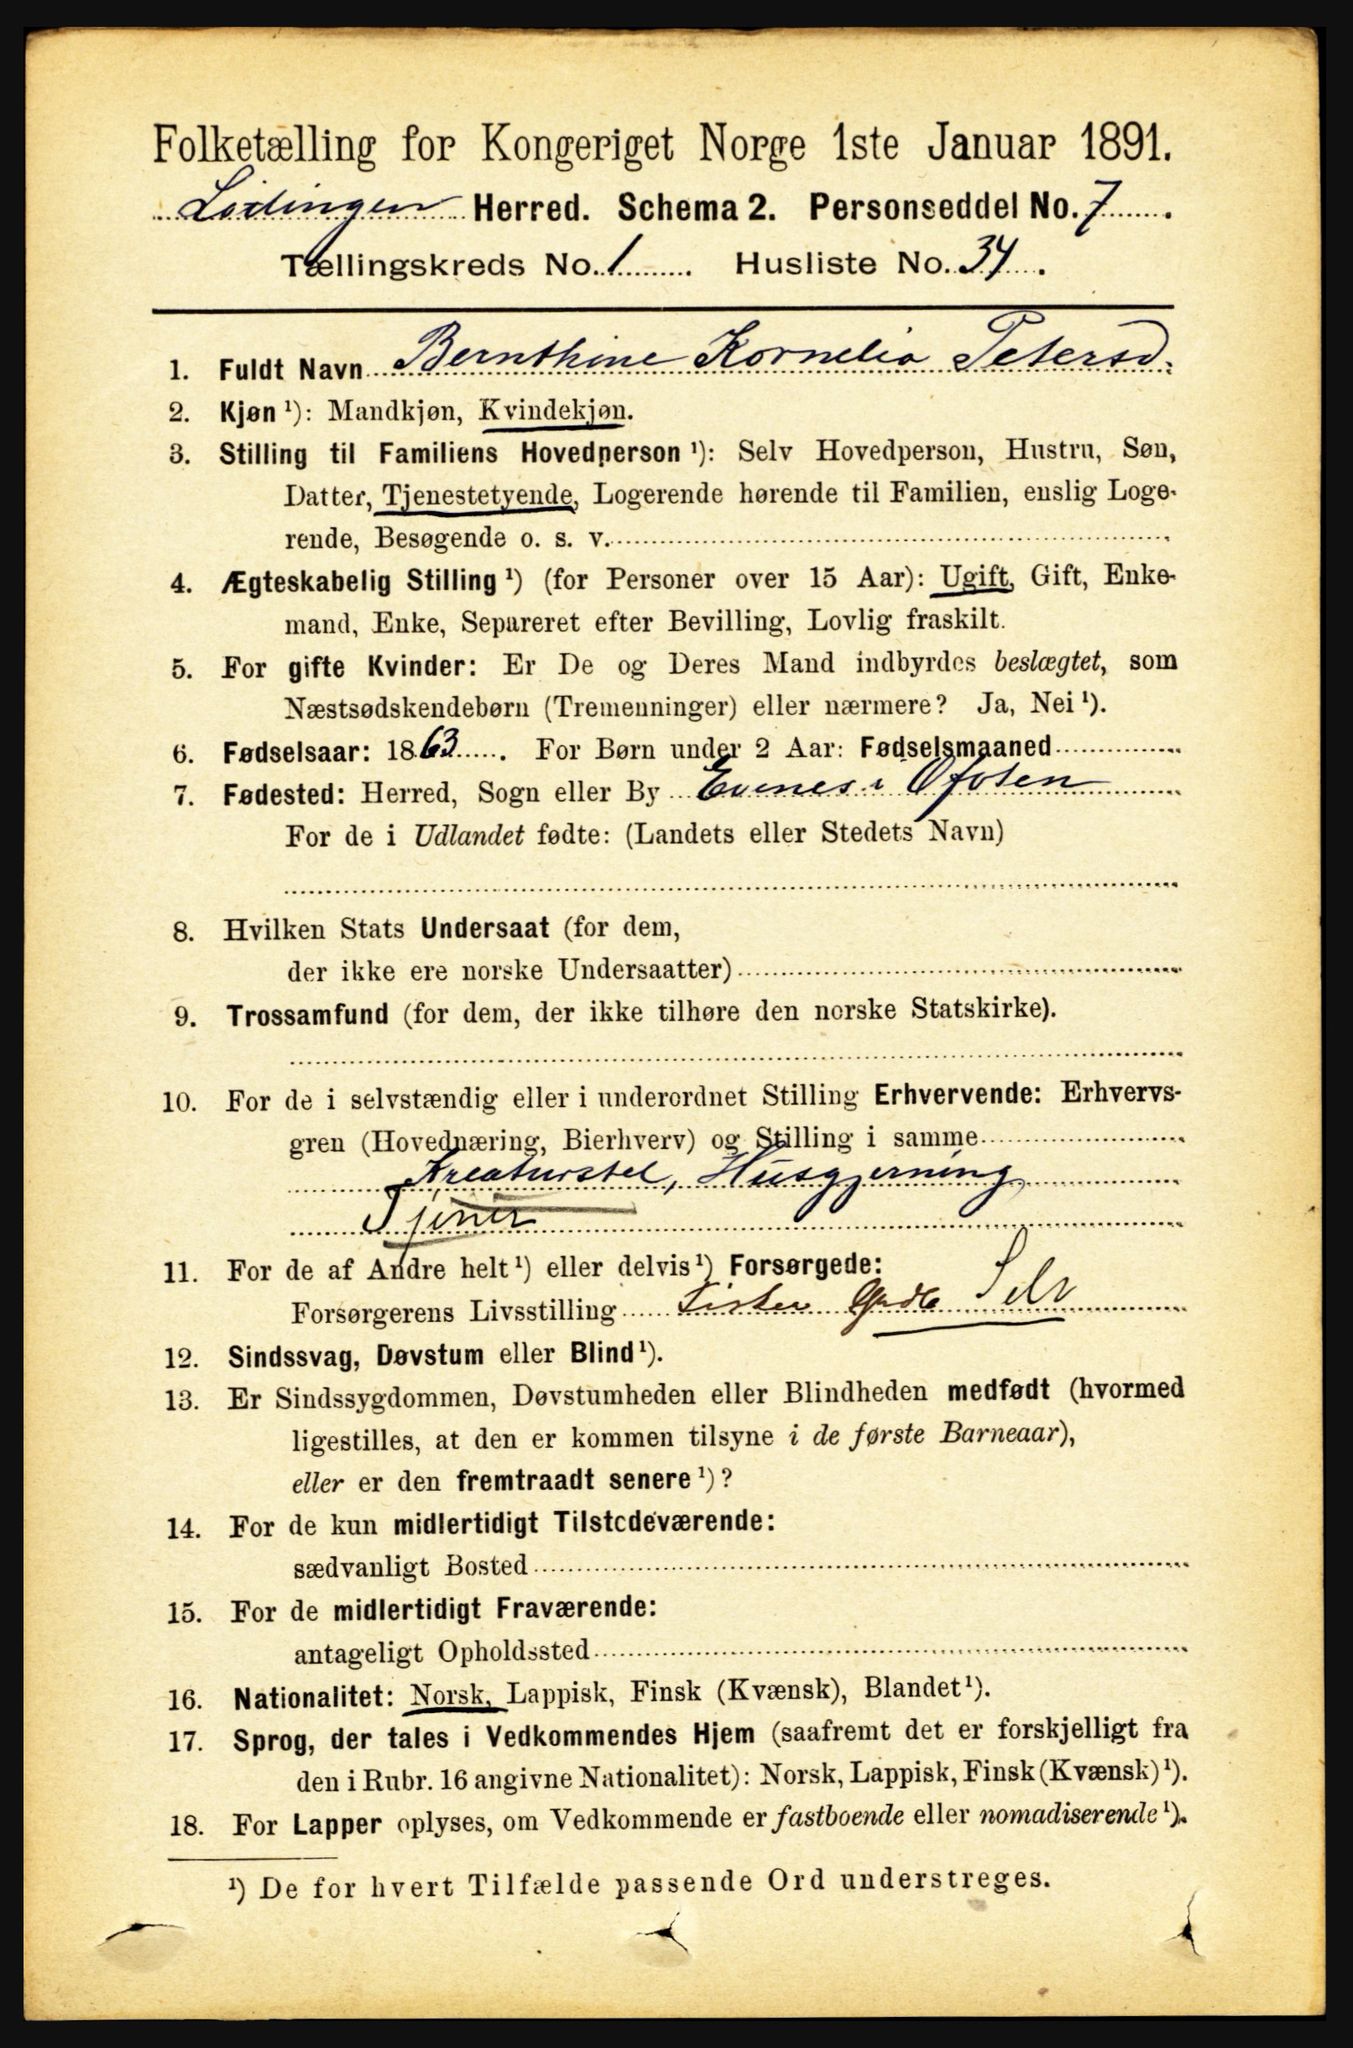 Folketælling for Kongeriget Norge 1ste Januar 1891.
Lødingen Herred. Schema 2. Personseddel No. 7.
Tællingskreds No. 1. Husliste No. 34.
1. Fuldt Navn Bernthine Kornelia Petersd.
2. Kjøn ¹): Mandkjøn, Kvindekjøn.
3. Stilling til Familiens Hovedperson ¹): Selv Hovedperson, Hustru, Søn,
Datter, Tjenestetyende, Logerende hørende til Familien, enslig Loge-
rende, Besøgende o. s. v.
4. Ægteskabelig Stilling ¹) (for Personer over 15 Aar): Ugift, Gift, Enke-
mand, Enke, Separeret efter Bevilling, Lovlig fraskilt.
5. For gifte Kvinder: Er De og Deres Mand indbyrdes beslægtet, som
Næstsødskendebørn (Tremenninger) eller nærmere? Ja, Nei ¹).
6. Fødselsaar: 1863. For Børn under 2 Aar: Fødselsmaaned
7. Fødested: Herred, Sogn eller By Evenes i Ofoten
For de i Udlandet fødte: (Landets eller Stedets Navn)
8. Hvilken Stats Undersaat (for dem,
der ikke ere norske Undersaatter)
9. Trossamfund (for dem, der ikke tilhøre den norske Statskirke).
10. For de i selvstændig eller i underordnet Stilling Erhvervende: Erhvervs-
gren (Hovednæring, Bierhverv) og Stilling i samme
Kreaturstel, Husgjerning
Tjener
11. For de af Andre helt ¹) eller delvis ¹) Forsørgede:
Forsørgerens Livsstilling Fisker Gndb Selv
12. Sindssvag, Døvstum eller Blind ¹).
13. Er Sindssygdommen, Døvstumheden eller Blindheden medfødt (hvormed
ligestilles, at den er kommen tilsyne i de første Barneaar),
eller er den fremtraadt senere ¹)?
14. For de kun midlertidigt Tilstedeværende:
sædvanligt Bosted
15. For de midlertidigt Fraværende:
antageligt Opholdssted
16. Nationalitet: Norsk, Lappisk, Finsk (Kvænsk), Blandet ¹).
17. Sprog, der tales i Vedkommendes Hjem (saafremt det er forskjelligt fra
den i Rubr. 16 angivne Nationalitet): Norsk, Lappisk, Finsk (Kvænsk) ¹).
18. For Lapper oplyses, om Vedkommende er fastboende eller nomadiserende ¹).
¹) De for hvert Tilfælde passende Ord understreges.